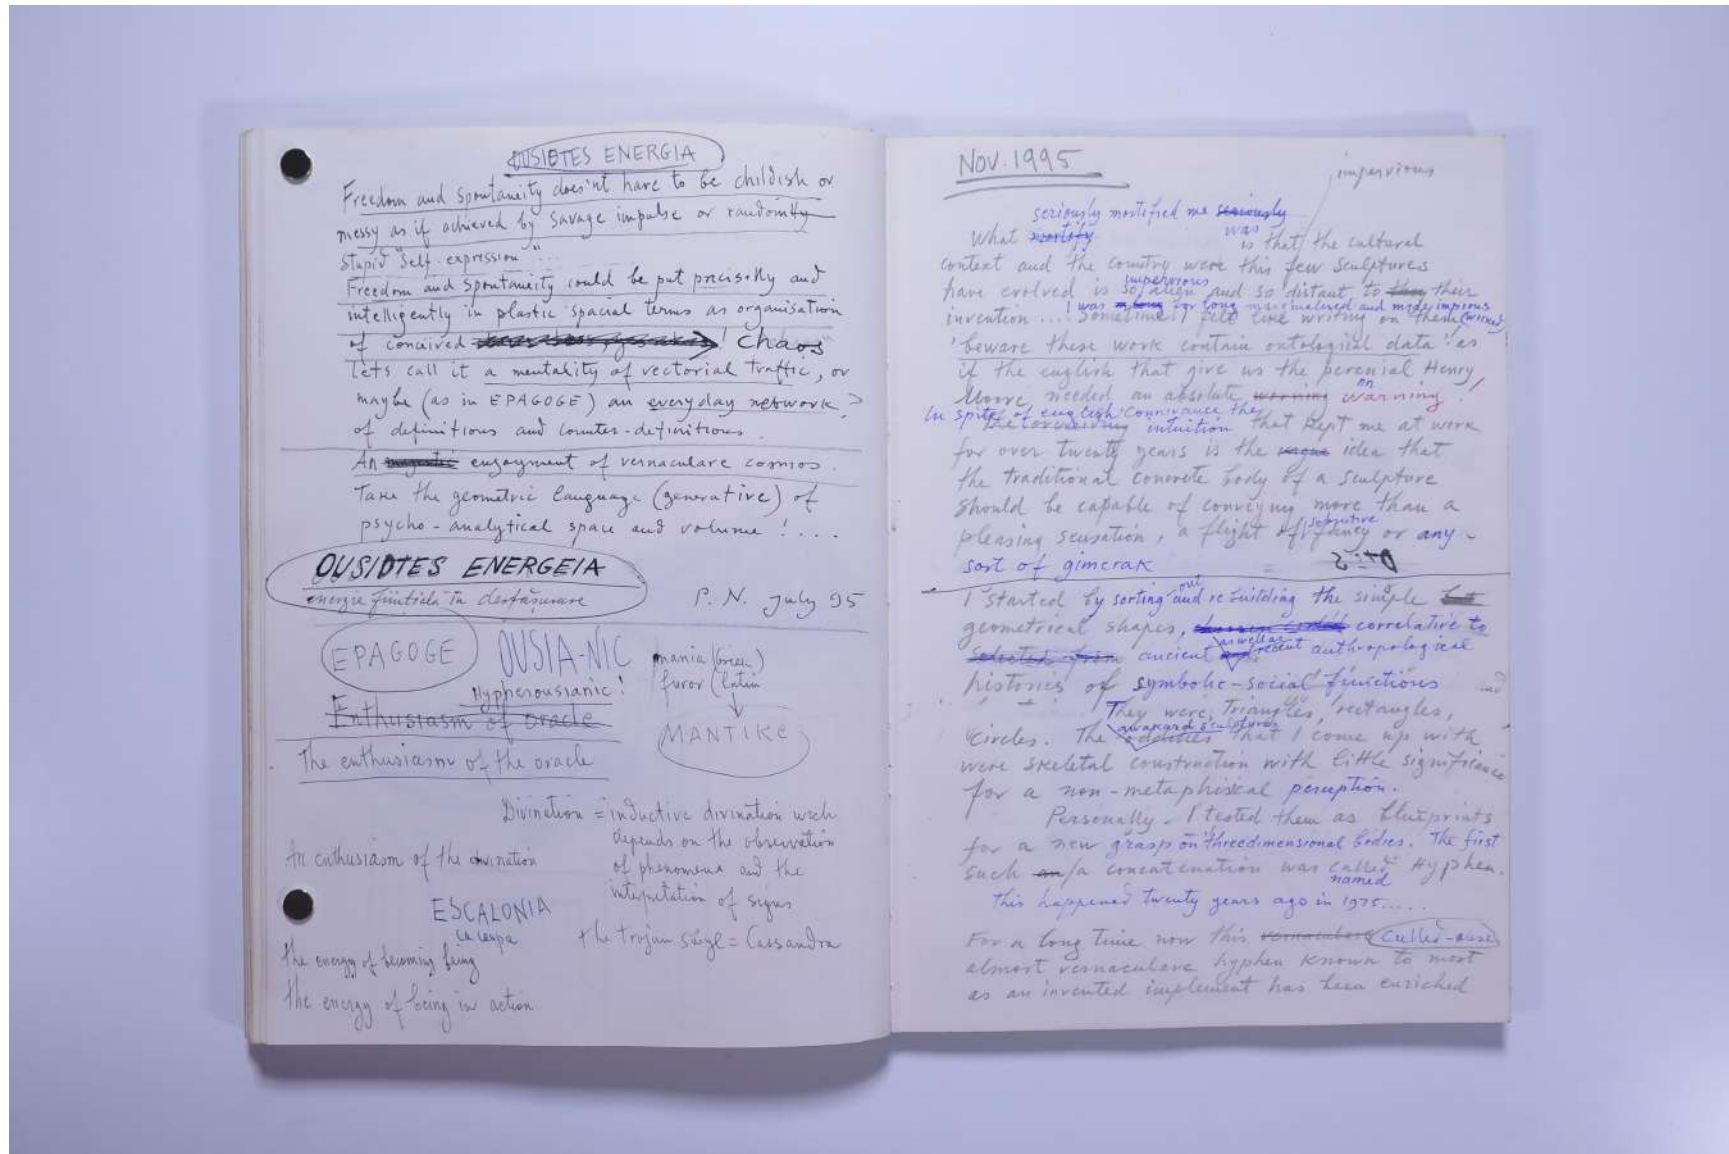 OUSIOTES ENERGIA
Freedom and spontaneity does'nt have to be childish or
messy as if achieved by savage impulse or randomly
stupid "self-expression"...
Freedom and spontaneity could be put precisely and
intelligently in plastic spacial terms as organisation
of conceived ! chaos
lets call it a mentality of vectorial traffic, or
maybe (as in EPAGOGE) an everyday network?
of definitions and counter-definitions.
An majestic enjoyment of vernaculare cosmos.
Take the geometric language (generative) of
psycho-analytical space and volume!....
OUSIOTES ENERGEIA
energie ființială în desfășurare
P. N. July 95
EPAGOGE OUSIA-NIC
mania (Greek)
furor (latin
Hypperousianic!
Enthusiasm of oracle
MANTIKE
The enthusiasm of the oracle
Divination = inductive divination wich
depends on the observation
of phenomena and the
interpretation of signs
An enthusiasm of the divination
ESCALONIA
ca ceapa
the trojan sibyl = Cassandra
the energy of becoming being
the energy of being in action
NOV. 1995
impervious
seriously mortified me seriously
What mortify was is that the cultural
context and the country were this few sculptures
impervious
have evolved is so align and so distant to they their
I was for long marginalised and made impious
invention.... Sometime I felt like writing on them (wicked)
'beware these work contain ontological data' as
if the english that give us the perenial Henry
Moore needed an absolute warning on warning!
In spite of english connivance the
The intuition that kept me at work
for over twenty years is the vague idea that
the traditional concrete body of a sculpture
should be capable of conveying more than a
pleasing sensation, a flight of fancy or any
sort of gimcrak
I started by sorting out and re building the simple
geometrical shapes, correlative to
selected from ancient as well as recent anthropological
histories of symbolic-social functions
They were: Triangles, rectangles,
awkward sculptures
circles. The oddities that I come up with
were skeletal construction with little significance
for a non-metaphisical perception.
Personally I tested them as blueprints
for a new grasp on threedimensional bodies. The first
such an/a concatenation was called Hyphen.
named
This happened twenty years ago in 1975.....
For a long time now this vernaculare
almost vernaculare hyphen known to most
as an invented implement has been enriched